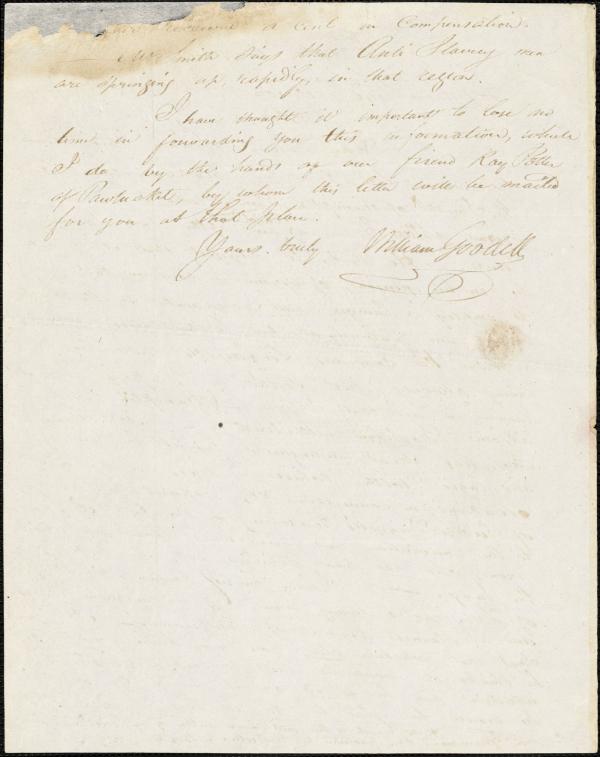 received a cent in Compensation.
Mr Smith says that Anti Slavery men
are springing up rapidly in that region.
I have thought it important to lose no
time in forwarding you this information, which
I do by the hands of our friend Ray Potter
of Pawtucket, by whom this letter will be mailed
for you at that place.
Yours truly William Goodell